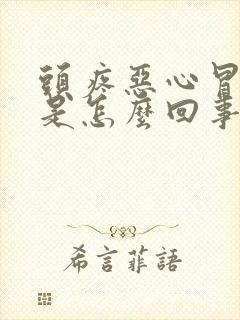 頭疼惡心冒
是怎麼回事
希言菲語